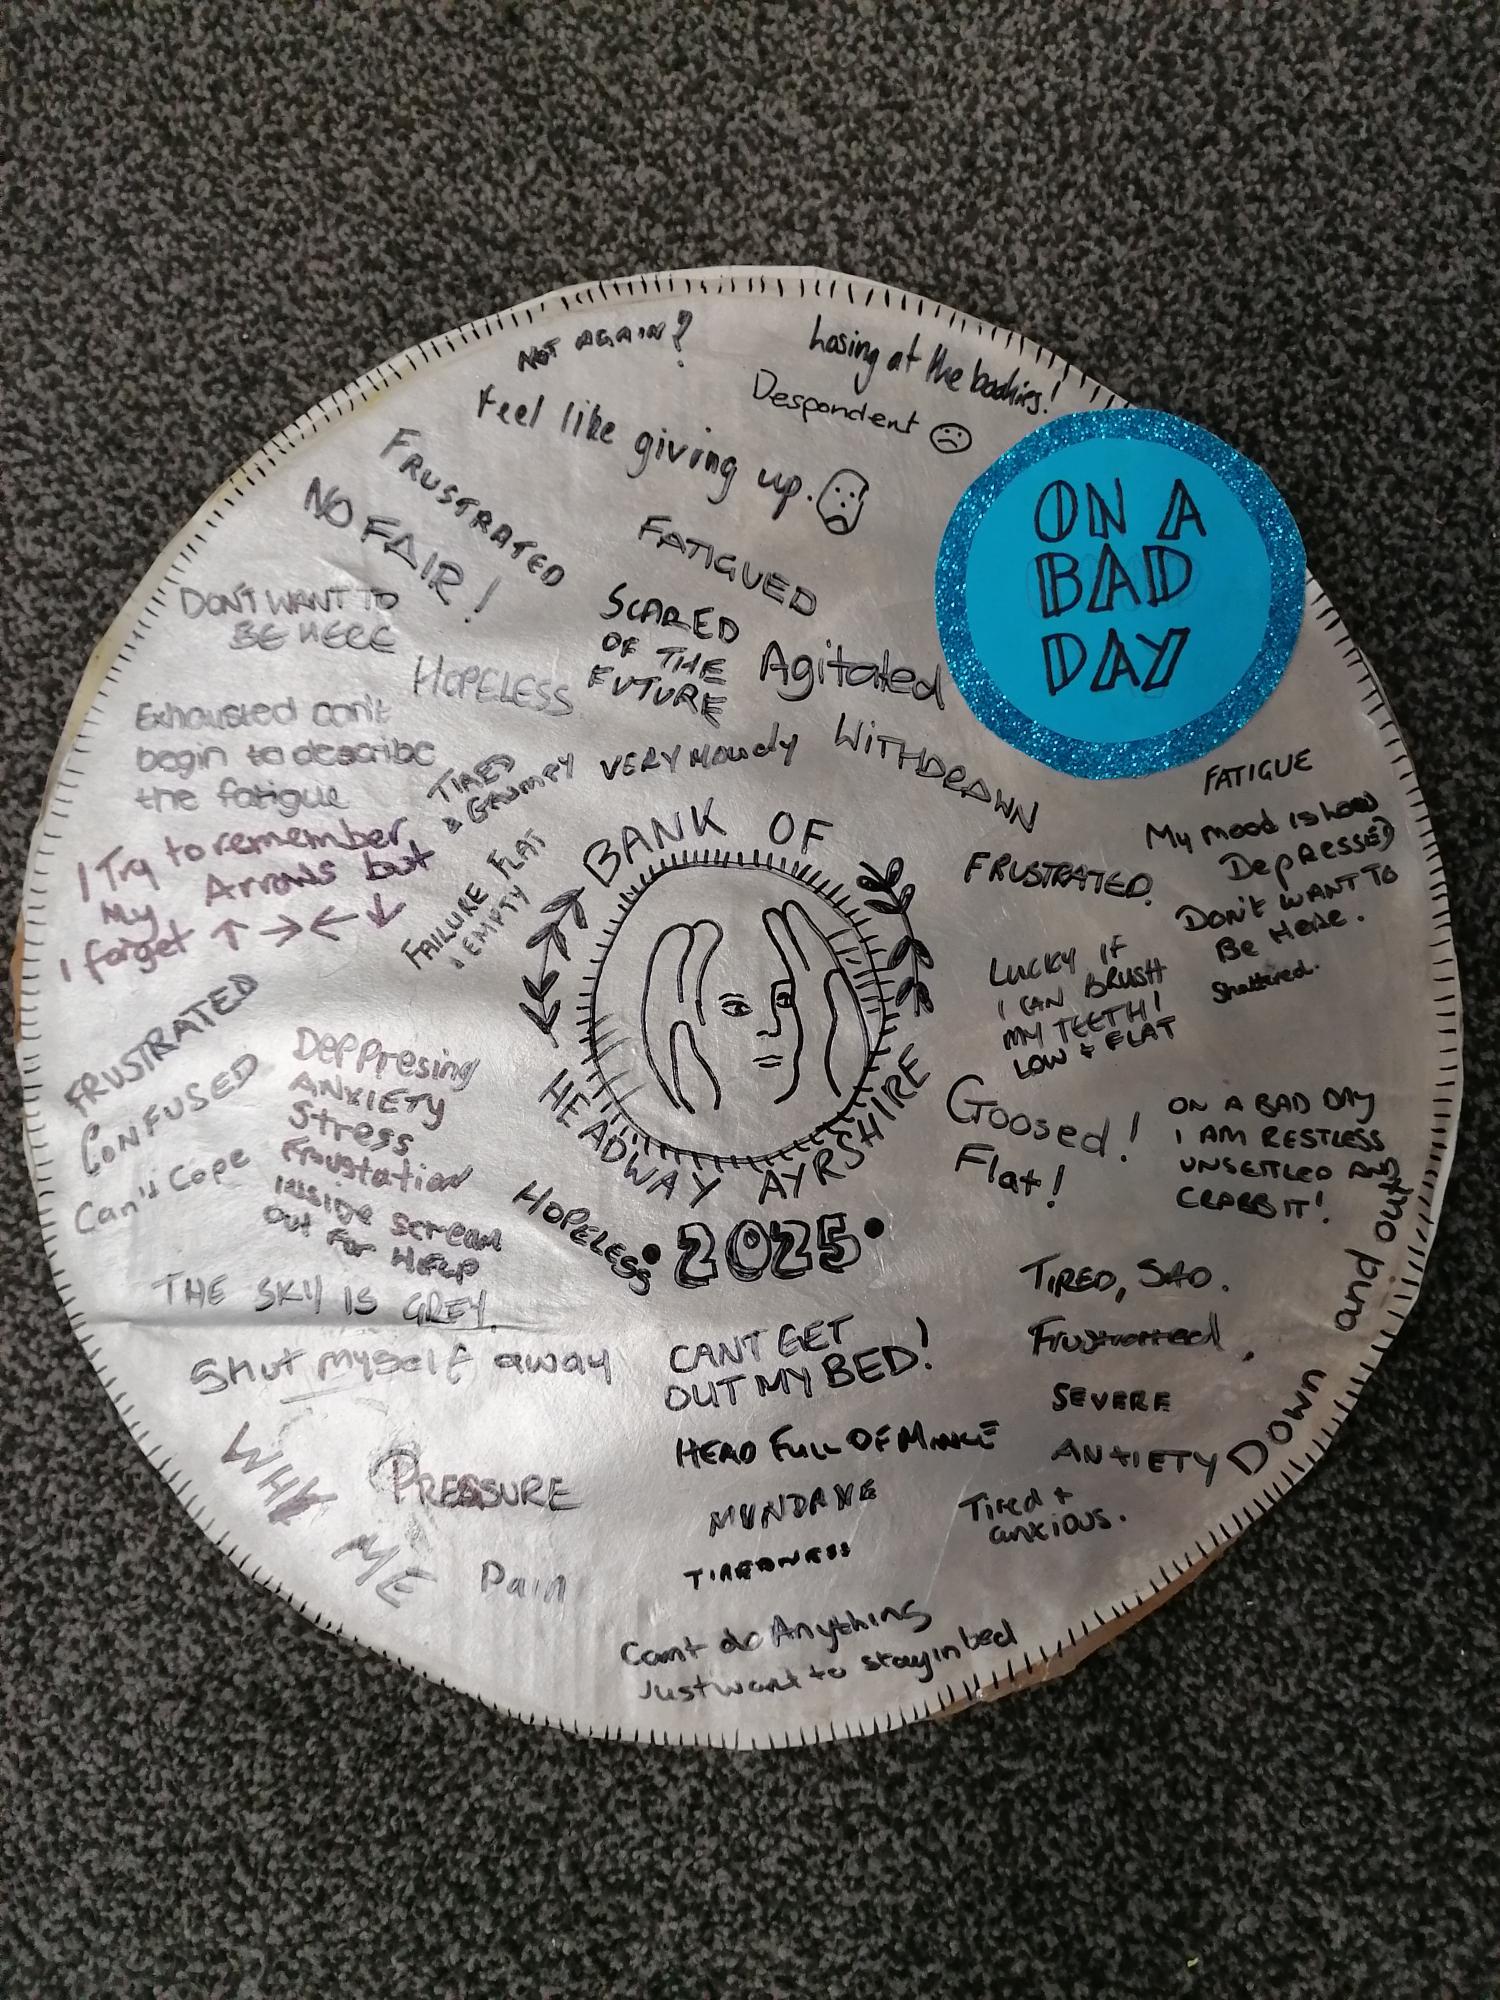 NOT AGAIN?
Losing at the bookies!
Despondent
Feel like giving up.
ON A
BAD
DAY
FRUSTRATED
NO FAIR!
FATIGUED
DON'T WANT TO
BE HERE
SCARED
OF THE
FUTURE
Agitated
HOPELESS
Exhausted can't
begin to describe
the fatigue
TIRED
& GRUMPY
VERY Moody
WITHDRAWN
FATIGUE
I Try to remember
My Arrows but
I forget ↑ → ← ↓
FAILURE FLAT
& EMPTY
BANK OF
HEADWAY AYRSHIRE
2025
FRUSTRATED.
My mood is low
DepRESSED
DON'T WANT TO
Be HeRe.
Shattered.
LUCKY IF
I CAN BRUSH
MY TEETH!
LOW & FLAT
FRUSTRATED
CONFUSED
Can't Cope
Deppresing
ANXIETY
Stress
Frustation
inside scream
out for HELP
HOPELESS
Goosed!
Flat!
ON A BAD DAY
I AM RESTLESS
UNSETTLED AND
CRABBIT!
THE SKY IS GREY.
Shut myself away
CANT GET
OUT MY BED!
TIRED, SAD.
Frustrated,
SEVERE
ANXIETY
Down and out
HEAD FULL OF MINCE
WHY ME
PRESSURE
MUNDANE
Tired +
anxious.
TIREDNESS
Pain
Cant do Anything
Just want to stay in bed